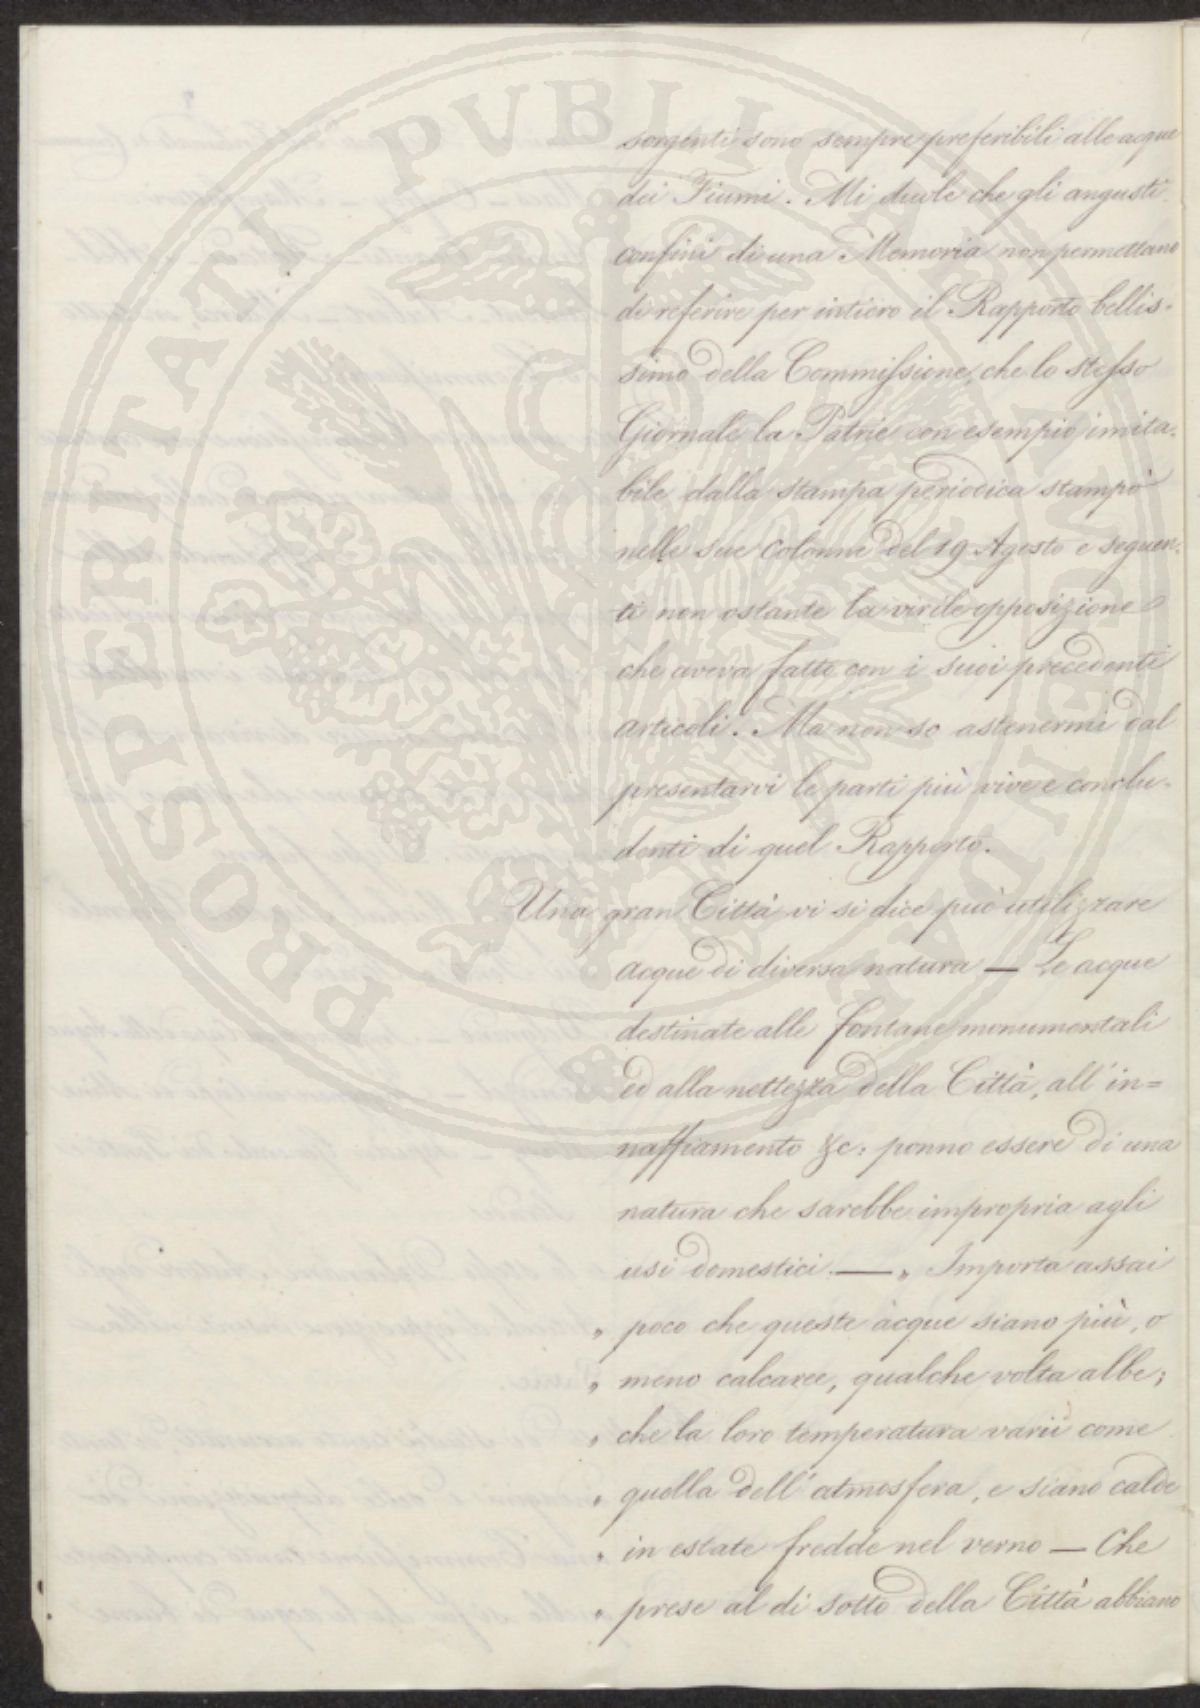 sorgenti sono sempre preferibili alle acque
dei Fiumi. Mi duole che gli angusti
confini di una Memoria non permettano
di referire per intiero il Rapporto bellis-
simo della Commissione, che lo stesso
Giornale la Patrie con esempio imita-
bile dalla stampa periodica stampò
nelle sue colonne del 19 Agosto e seguen-
ti non ostante la virile opposizione
che aveva fatto con i suoi precedenti
articoli. Ma non so astenermi dal
presentarvi le parti più vive e conclu-
denti di quel Rapporto.
Una gran Città vi si dice può utilizzare
acque di diversa natura — Le acque
destinate alle fontane monumentali
ed alla nettezza della Città, all'in=
naffiamento &c: ponno essere di una
natura che sarebbe impropria agli
usi domestici. — „ Importa assai
„ poco che queste acque siano più, o
„ meno calcaree, qualche volta albe;
„ che la loro temperatura varii come
„ quella dell'atmosfera, e siano calde
„ in estate fredde nel verno — Che
„ prese al di sotto della Città abbiano
PROSPERITATI PUBLICAE AUGENDAE